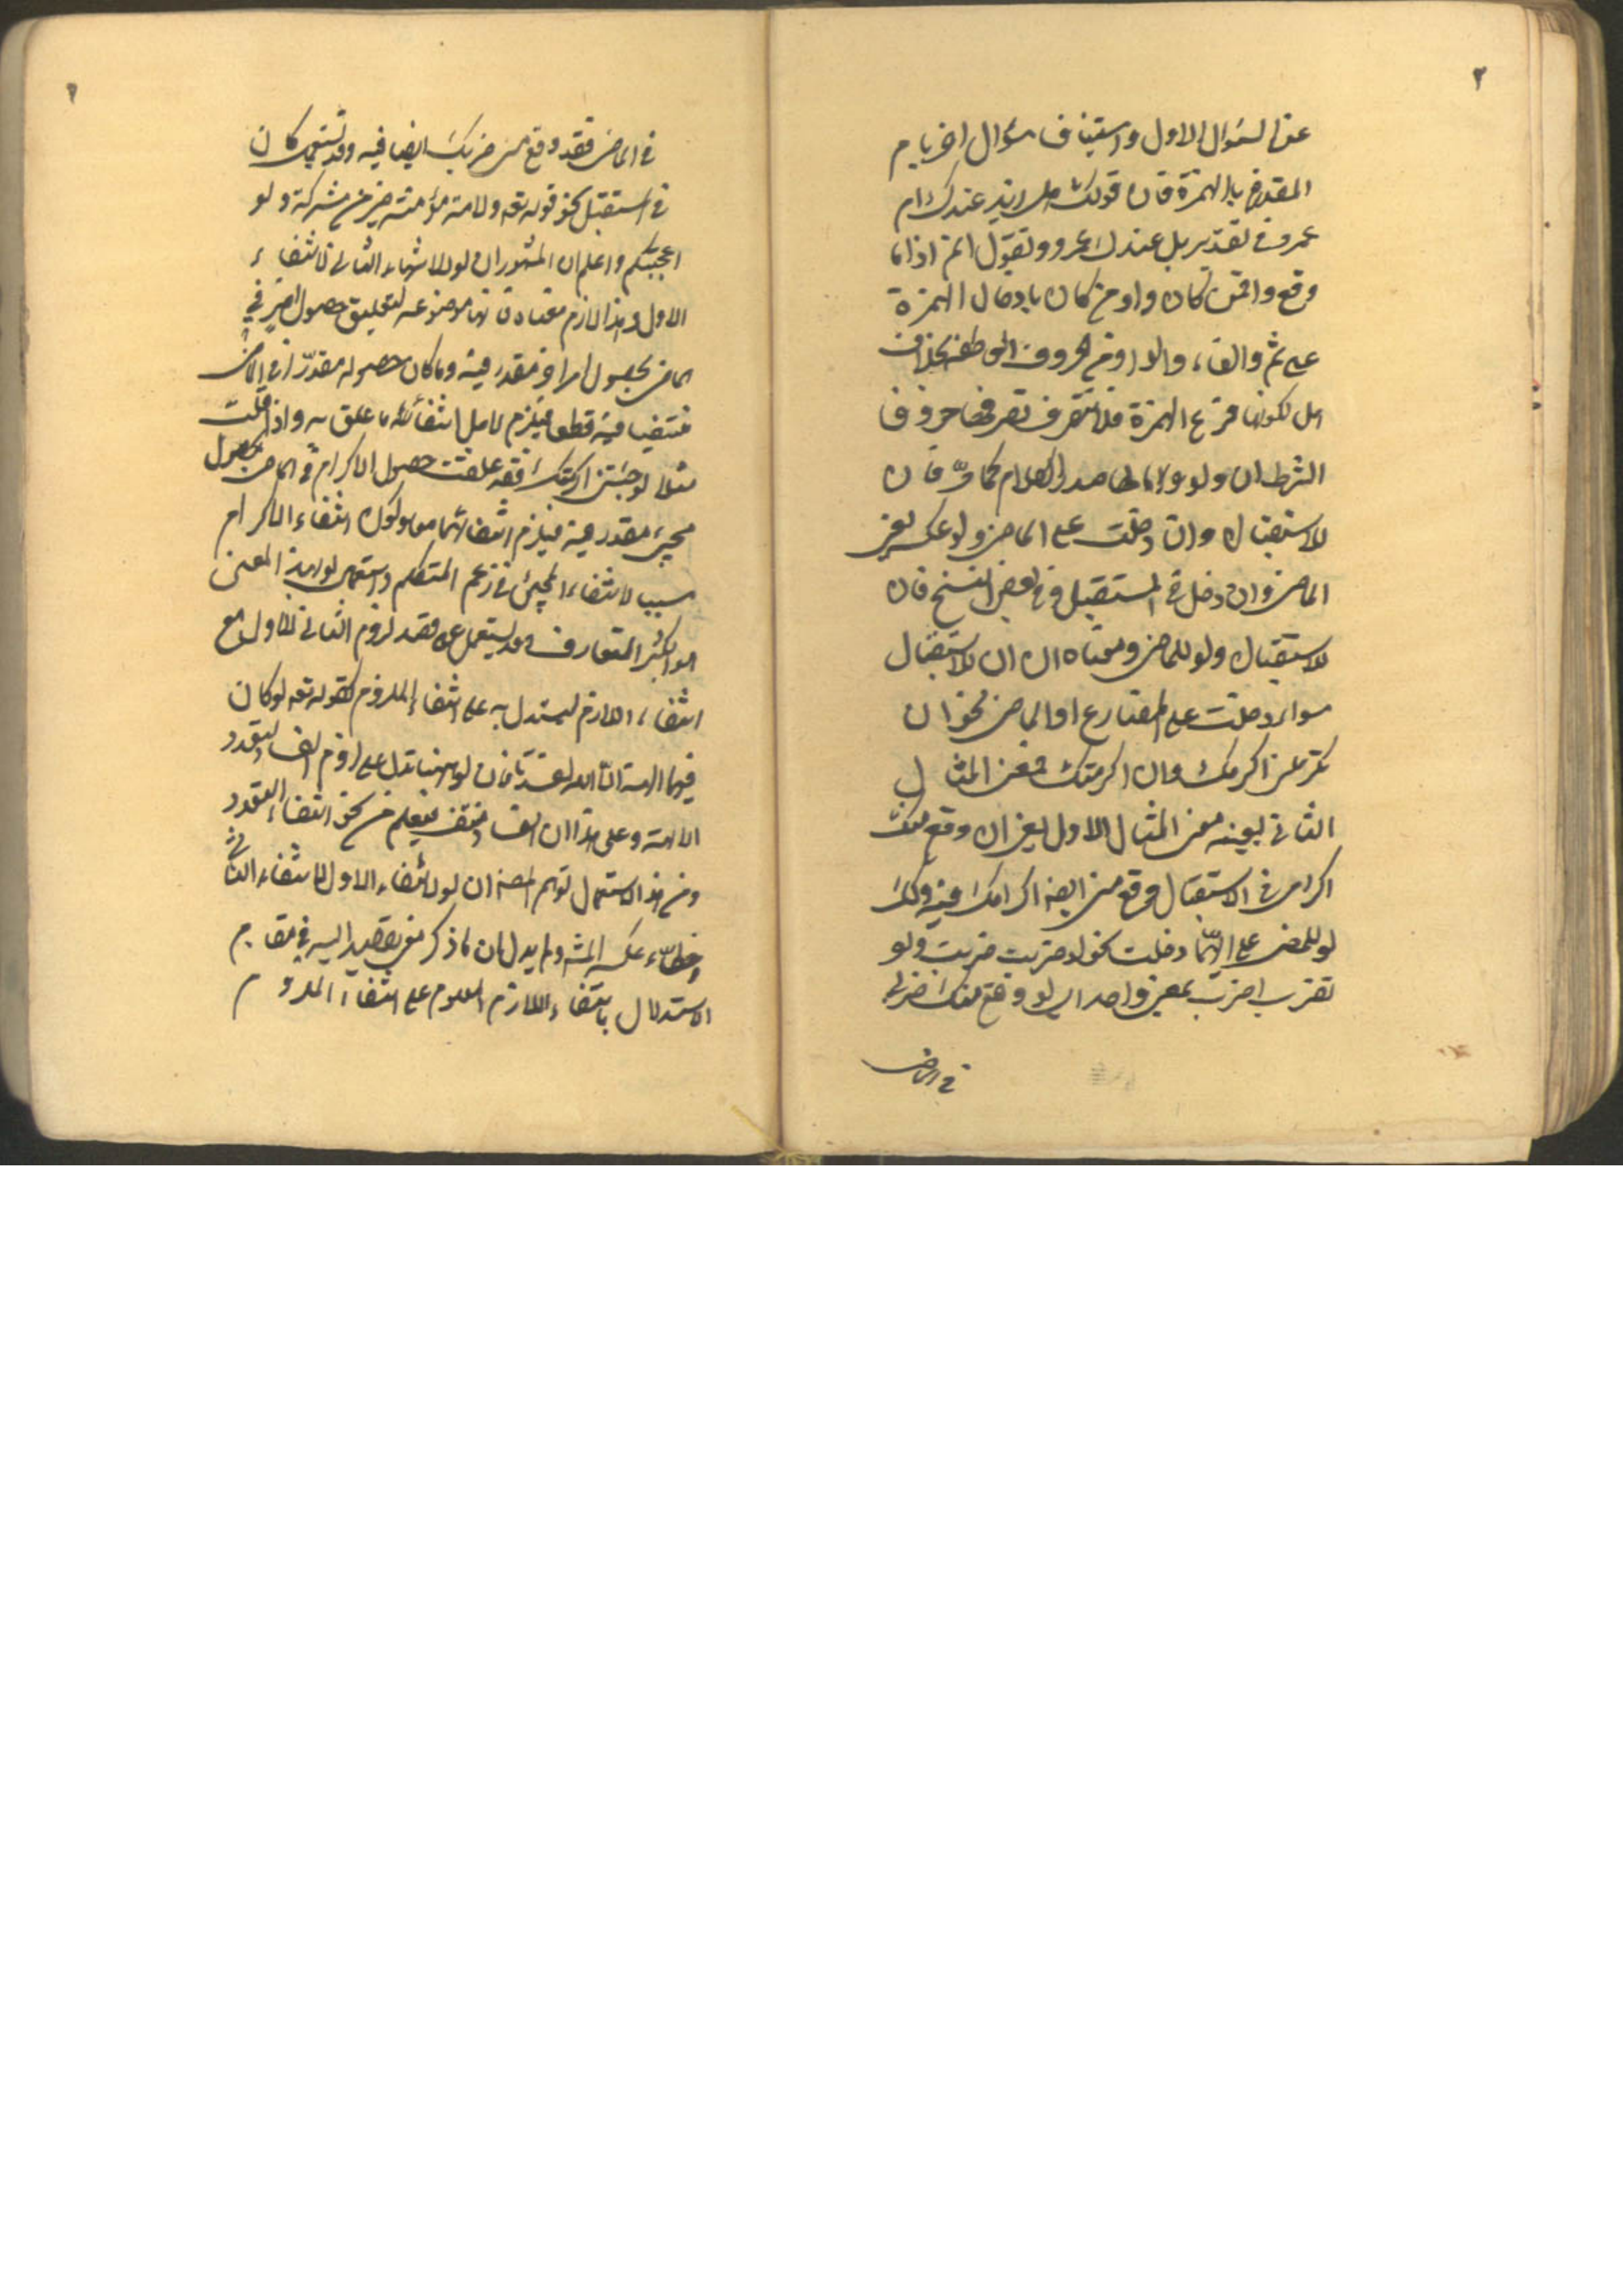 ٢
عن السؤال الاول واستيناف سؤال اخر بام
المقدرة بالهمزة فان قولك هل زيد عندك ام
عمرو في تقدير بل عندك عمرو وتقول اثم اذا ما
وقع وافمن كان واو من كان بادخال الهمزة
على ثم والفاء والواو من الحروف العاطفة بخلاف
هل لكونها فرع الهمزة فلا تتصرف تصرفها حروف
الشرط ان ولو ولها صدر الكلام كما مر فان
للاستقبال وان دخلت على الماضي ولو عكسه يعني
الماضي وان دخل في المستقبل وفي بعض النسخ فان
للاستقبال ولو للماضي ومعناه ان ان للاستقبال
سواء دخلت على المضارع او الماضي نحو ان
تكرمني اكرمك وان اكرمتك فمعنى المثال
الثاني بعينه معنى المثال الاول يعني ان وقع منك
اكرامي في الاستقبال وقع مني ايضا اكرامك فيه وكذلك
لو للمضي على ايهما دخلت نحو لو ضربت ضربت ولو
تضرب اضرب بمعنى واحد اي لو وقع منك ضربي
في الماضي
في الماضي فقد وقع مني ضربك ايضا فيه وقد تستعمل كان
في المستقبل نحو قوله تعه ولامة مؤمنة خير من مشركة ولو
اعجبتكم واعلم ان المشهور ان لو لانتفاء الثاني لانتفاء
الاول وهذا لازم معناه فانها موضوعة لتعليق حصول امر في
الماضي بحصول امر اخر مقدر فيه وما كان حصوله مقدرا في الماضي
منتفيا فيه قطعا فيلزم لاجل انتفائه انتفاء ما علق به واذا قلت
مثلا لو جئتني اكرمتك فقد علقت حصول الاكرام في الماضي بحصول
مجيء مقدر فيه فيلزم انتفائهما معا وكون انتفاء الاكرام
سبب لانتفاء المجيء في زعم المتكلم واستعمال لو بهذا المعنى
هو الكثير المتعارف وقد يستعمل على قصد لزوم الثاني للاول مع
انتفاء اللازم ليستدل به على انتفاء الملزوم كقوله تعه لو كان
فيهما الهة الا الله لفسدتا فان لو ههنا تدل على لزوم الفساد لتعدد
الالهة وعلى ان الفساد منتف فيعلم من نحو انتفاء التعدد
ومن هذا الاستعمال توهم المصنف ان لو لانتفاء الاول لانتفاء الثاني
وخطاء عكسه المشهور ولم يدر بان ما ذكر معنى يقصد اليه في مقام
الاستدلال بانتفاء اللازم المعلوم على انتفاء الملزوم